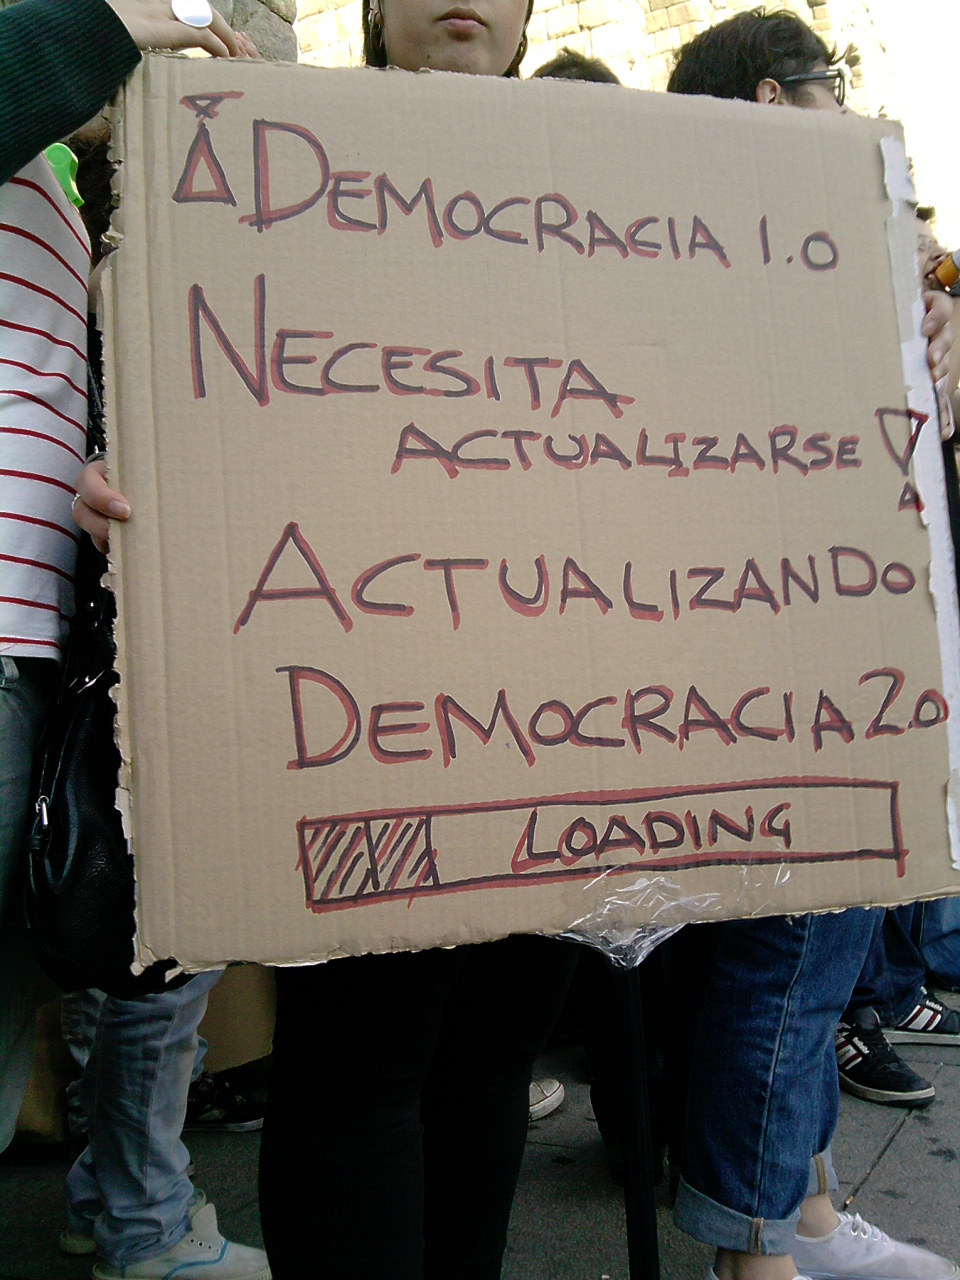 ¡DEMOCRACIA 1.0
NECESITA
ACTUALIZARSE!
ACTUALIZANDO
DEMOCRACIA 2.0
LOADING